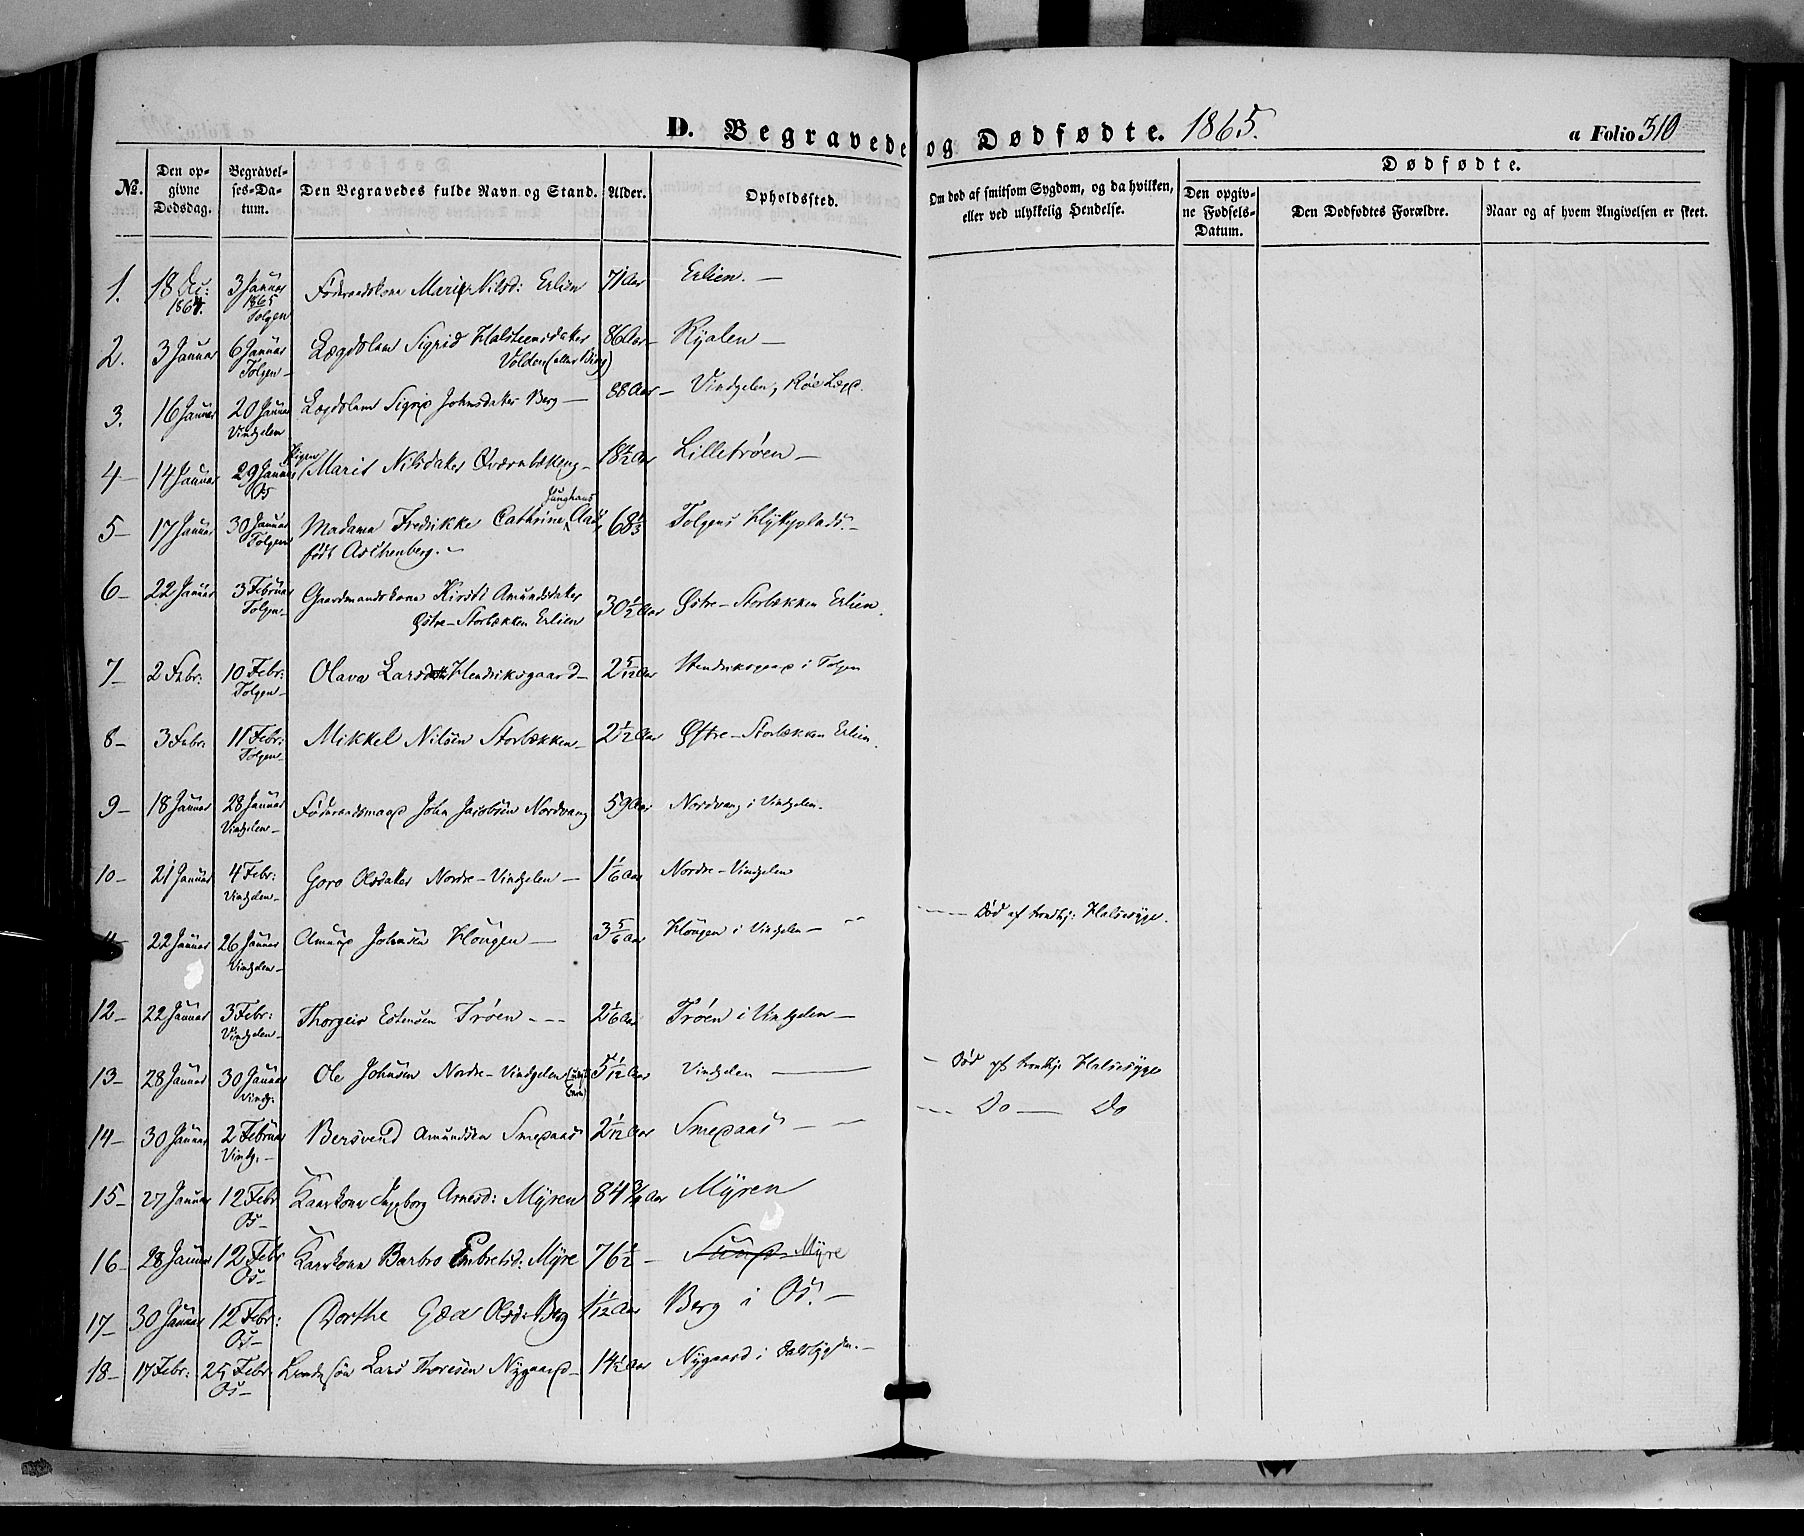 D. Begravede og Dødfødte. 1865.
a Folio 310
No.
Den opgivne Dødsdag.
Begravelses-Datum.
Den Begravedes fulde Navn og Stand.
Alder.
Opholdssted.
Om død af smitsom Sygdom, og da hvilken, eller ved ulykkelig Hendelse.
Dødfødte.
Den opgivne Fødsels-Datum.
Den Dødfødtes Forældre.
Naar og af hvem Angivelsen er skeet.
1. 18 Dec: 1864. 3 Januar 1865 Tolgen Føderaadskone Marit Nilsd: Erlien 71 Aar Erlien. —
2. 3 Januar 6 Januar Tolgen — Lægdslem Sigrid Halsteensdatter Volden (eller Berg) 86 Aar — Ryalen —
3. 16 Januar 20 Januar Vindgelen Lægdslem Sigrid Johnsdatter Berg — 88 Aar — Vindgelen, Røe Lægd.
4 — 14 Januar 29 Januar Os Pigen Marit Nilsdatter Qværnbækeng — 18½ Aar Lilletrøen —
5 — 17 Januar 30 Januar Tolgen Madame Fredrikke Cathrine Junghans Aas, født Aschenberg. — 68⅓ Tolgens Hytteplads. —
6 — 22 Januar 3 Februar Tolgen — Gaardmandskone Kirsti Amundsdatter Østre-Storbækken Erlien 30½ Aar Østre-Storbækken Erlien.
7 — 2 Febr: 10 Febr: Tolgen — Olava Larsdatter Hendriksgaard — 2 5/12 Aar Hendriksgaard i Tolgen
8 — 3 Febr: 11 Febr: Tolgen — Mikkel Nilsen Storbækken — 2 1/12 Aar Østre-Storbækken Erlien.
9 — 18 Januar 28 Januar Vindgelen — Føderaadsmand John Jacobsen Nordvang 59 Aar Nordvang i Vindgelen.
10 — 21 Januar 4 Febr: Vindgelen — Goro Olsdatter Nordre-Vindgelen — 1 1/6 Aar Nordre-Vindgelen
11 — 22 Januar 26 Januar Vindgelen — Amund Johnsen Hougen — 3 5/6 Aar Hougen i Vindgelen — Død af brandig: Halssyge.
12 — 22 Januar 3 Febr: Vindgelen — Thorgeir Estensen Trøen — 2 1/6 Aar Trøen i Vindgelen —
13 — 28 Januar 30 Januar Vindg: Ole Johnsen Nordre-Vindgelen 5 1/12 Aar Vindgelen — Død af brandig Halssyge
14 — 30 Januar 2 Februar Vindg. — Bersvend Amundsen Smedaas 2 1/12 Aar Smedaas — Do — Do
15 — 27 Januar 12 Febr Os — Kaarkone Ingeborg Arnesd: Myren 84 ¾ Aar Myren
16 — 28 Januar 12 Febr Os — Kaarkone Barbro Embretsd: Myre 76½ — Myre
17 — 30 Januar 12 Febr: Os — Dorthe Gaa Olsd: Berg 1 1/12 Aar Berg i Os. —
18 — 17 Febr: 25 Febr: Os — Lars Thoresen Nygaard — 14½ Aar Nygaard i Dalsbygden. —